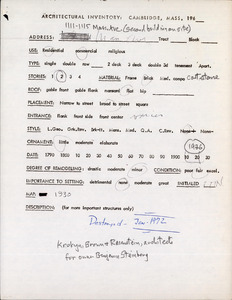 ARCHITECTURAL INVENTORY: CAMBRIDGE, MASS. 196
1111-1115 Mass Ave (second building on site)
ADDRESS: Tract Blank
USE: Residential commercial religious
TYPE: single double row 2 deck 3 deck double 3d tenement Apart.
STORIES: 1 2 3 4 MATERIAL: Frame brick Med. conpo cast stone
ROOF: gable front gable flank mansard flat hip gambrel
PLACEMENT: Narrow to street broad to street square
ENTRANCE: flank front side front center
STYLE: L.Geo. Grk.Rev. Brkt. Mans. Med. Q.A. C.Rev. None
ORNAMENT: little moderate elaborate 1926
DATE: 1790 1800 10 20 30 40 50 60 70 80 90 1900 10 20 30
DEGREE OF REMODELING: drastic moderate minor CONDITION: poor fair excel.
IMPORTANCE TO SETTING: detrimental none moderate great INITIALED
MAP 1930
DESCRIPTION: (for more important structures)
Destroyed - Jan. 1972
Krokyn, Browne & Rosenstein, architects
for owner Benjamin Steinberg